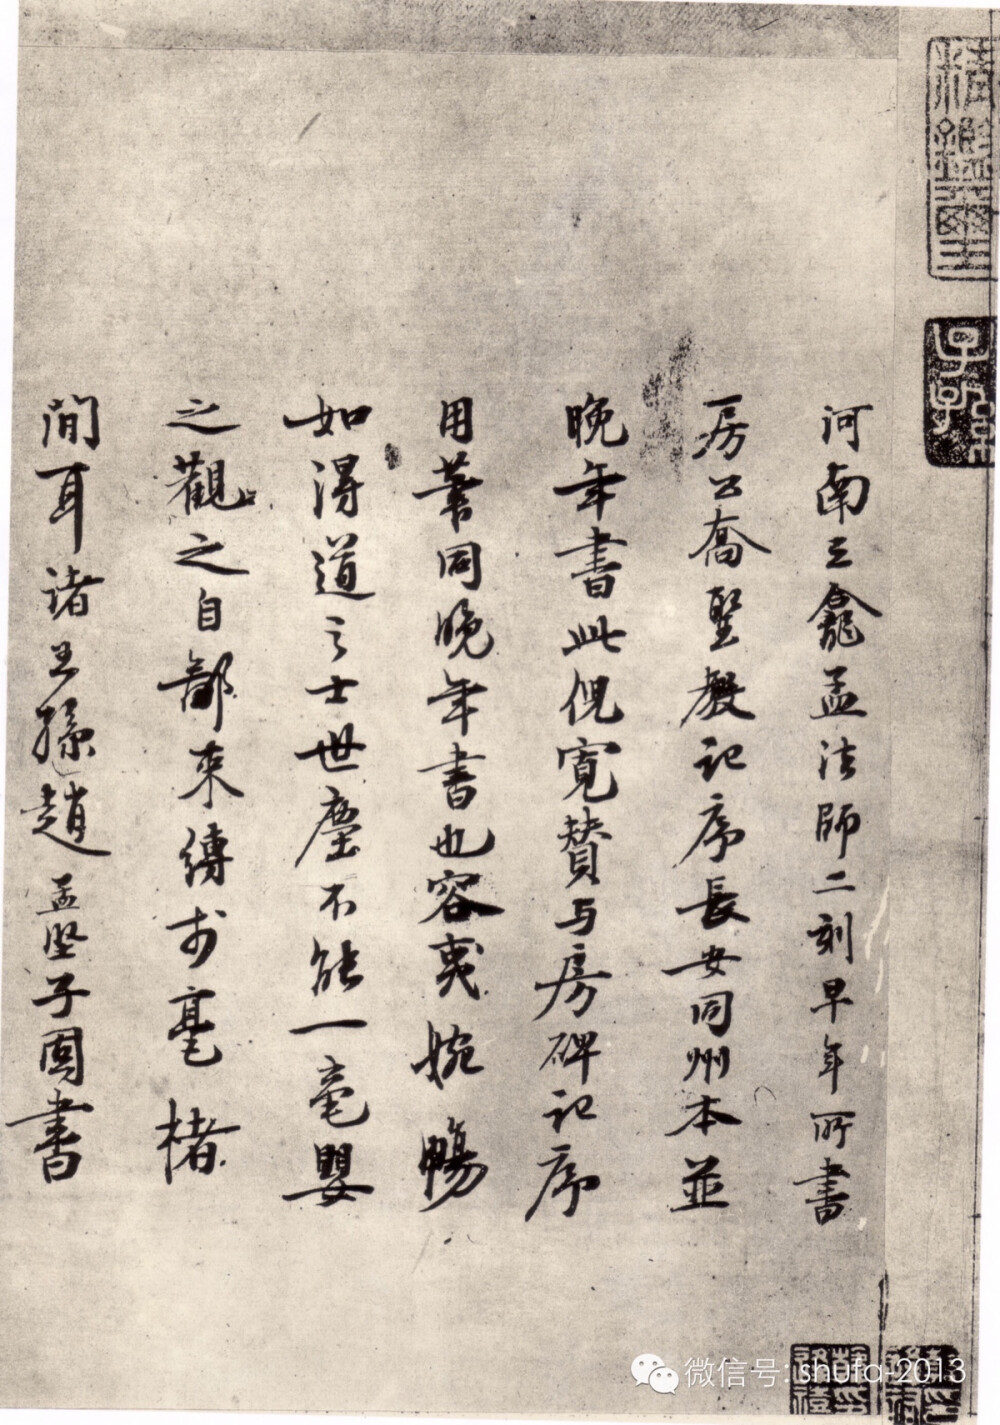 河南三龕孟法師二刻早年所書
房公喬聖教記序長安同州本並
晚年書此倪寬贊与房碑記序
用筆同晚年書也容夷婉暢
如得道之士世塵不能一毫嬰
之觀之自鄙束縛於毫楮
間耳諸王孫趙孟堅子固書
微信号: shufa-2013